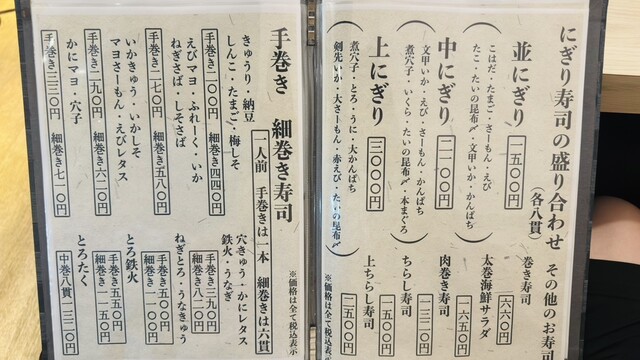 にぎり寿司の盛り合わせ
(各八貫)
並にぎり 一五〇〇円
こはだ・たまご・さーもん・えび
たこ・たいの昆布〆・文甲いか・かんぱち
中にぎり 二一〇〇円
文甲いか・えび・さーもん・かんぱち
煮穴子・いくら・たいの昆布〆・本まぐろ
上にぎり 三〇〇〇円
煮穴子・とろ・うに・大かんぱち
剣先いか・大さーもん・赤えび・たいの昆布〆
その他のお寿司
巻き寿司 六六〇円
太巻海鮮サラダ 一六五〇円
肉巻き寿司 一三二〇円
ちらし寿司 一五〇〇円
上ちらし寿司 二五〇〇円
※価格は全て税込表示
手巻き 細巻き寿司
一人前 手巻きは一本 細巻きは六貫
※価格は全て税込表示
きゅうり・納豆
しんこ・たまご・梅しそ
手巻き二〇〇円 細巻き四四〇円
えびマヨ・ふれーく・いか
ねぎさば・しそさば
手巻き二七〇円 細巻き五八〇円
いかきゅう・いかしそ
マヨさーもん・えびレタス
手巻き二九〇円 細巻き六二〇円
かにマヨ・穴子
手巻き三三〇円 細巻き七一〇円
穴きゅう・かにレタス
鉄火・うなぎ
手巻き三九〇円
細巻き八二〇円
ねぎとろ・うなきゅう
手巻き五〇〇円
細巻き一一〇〇円
とろ鉄火
手巻き五五〇円
細巻き一一五〇円
とろたく
中巻八貫一三二〇円